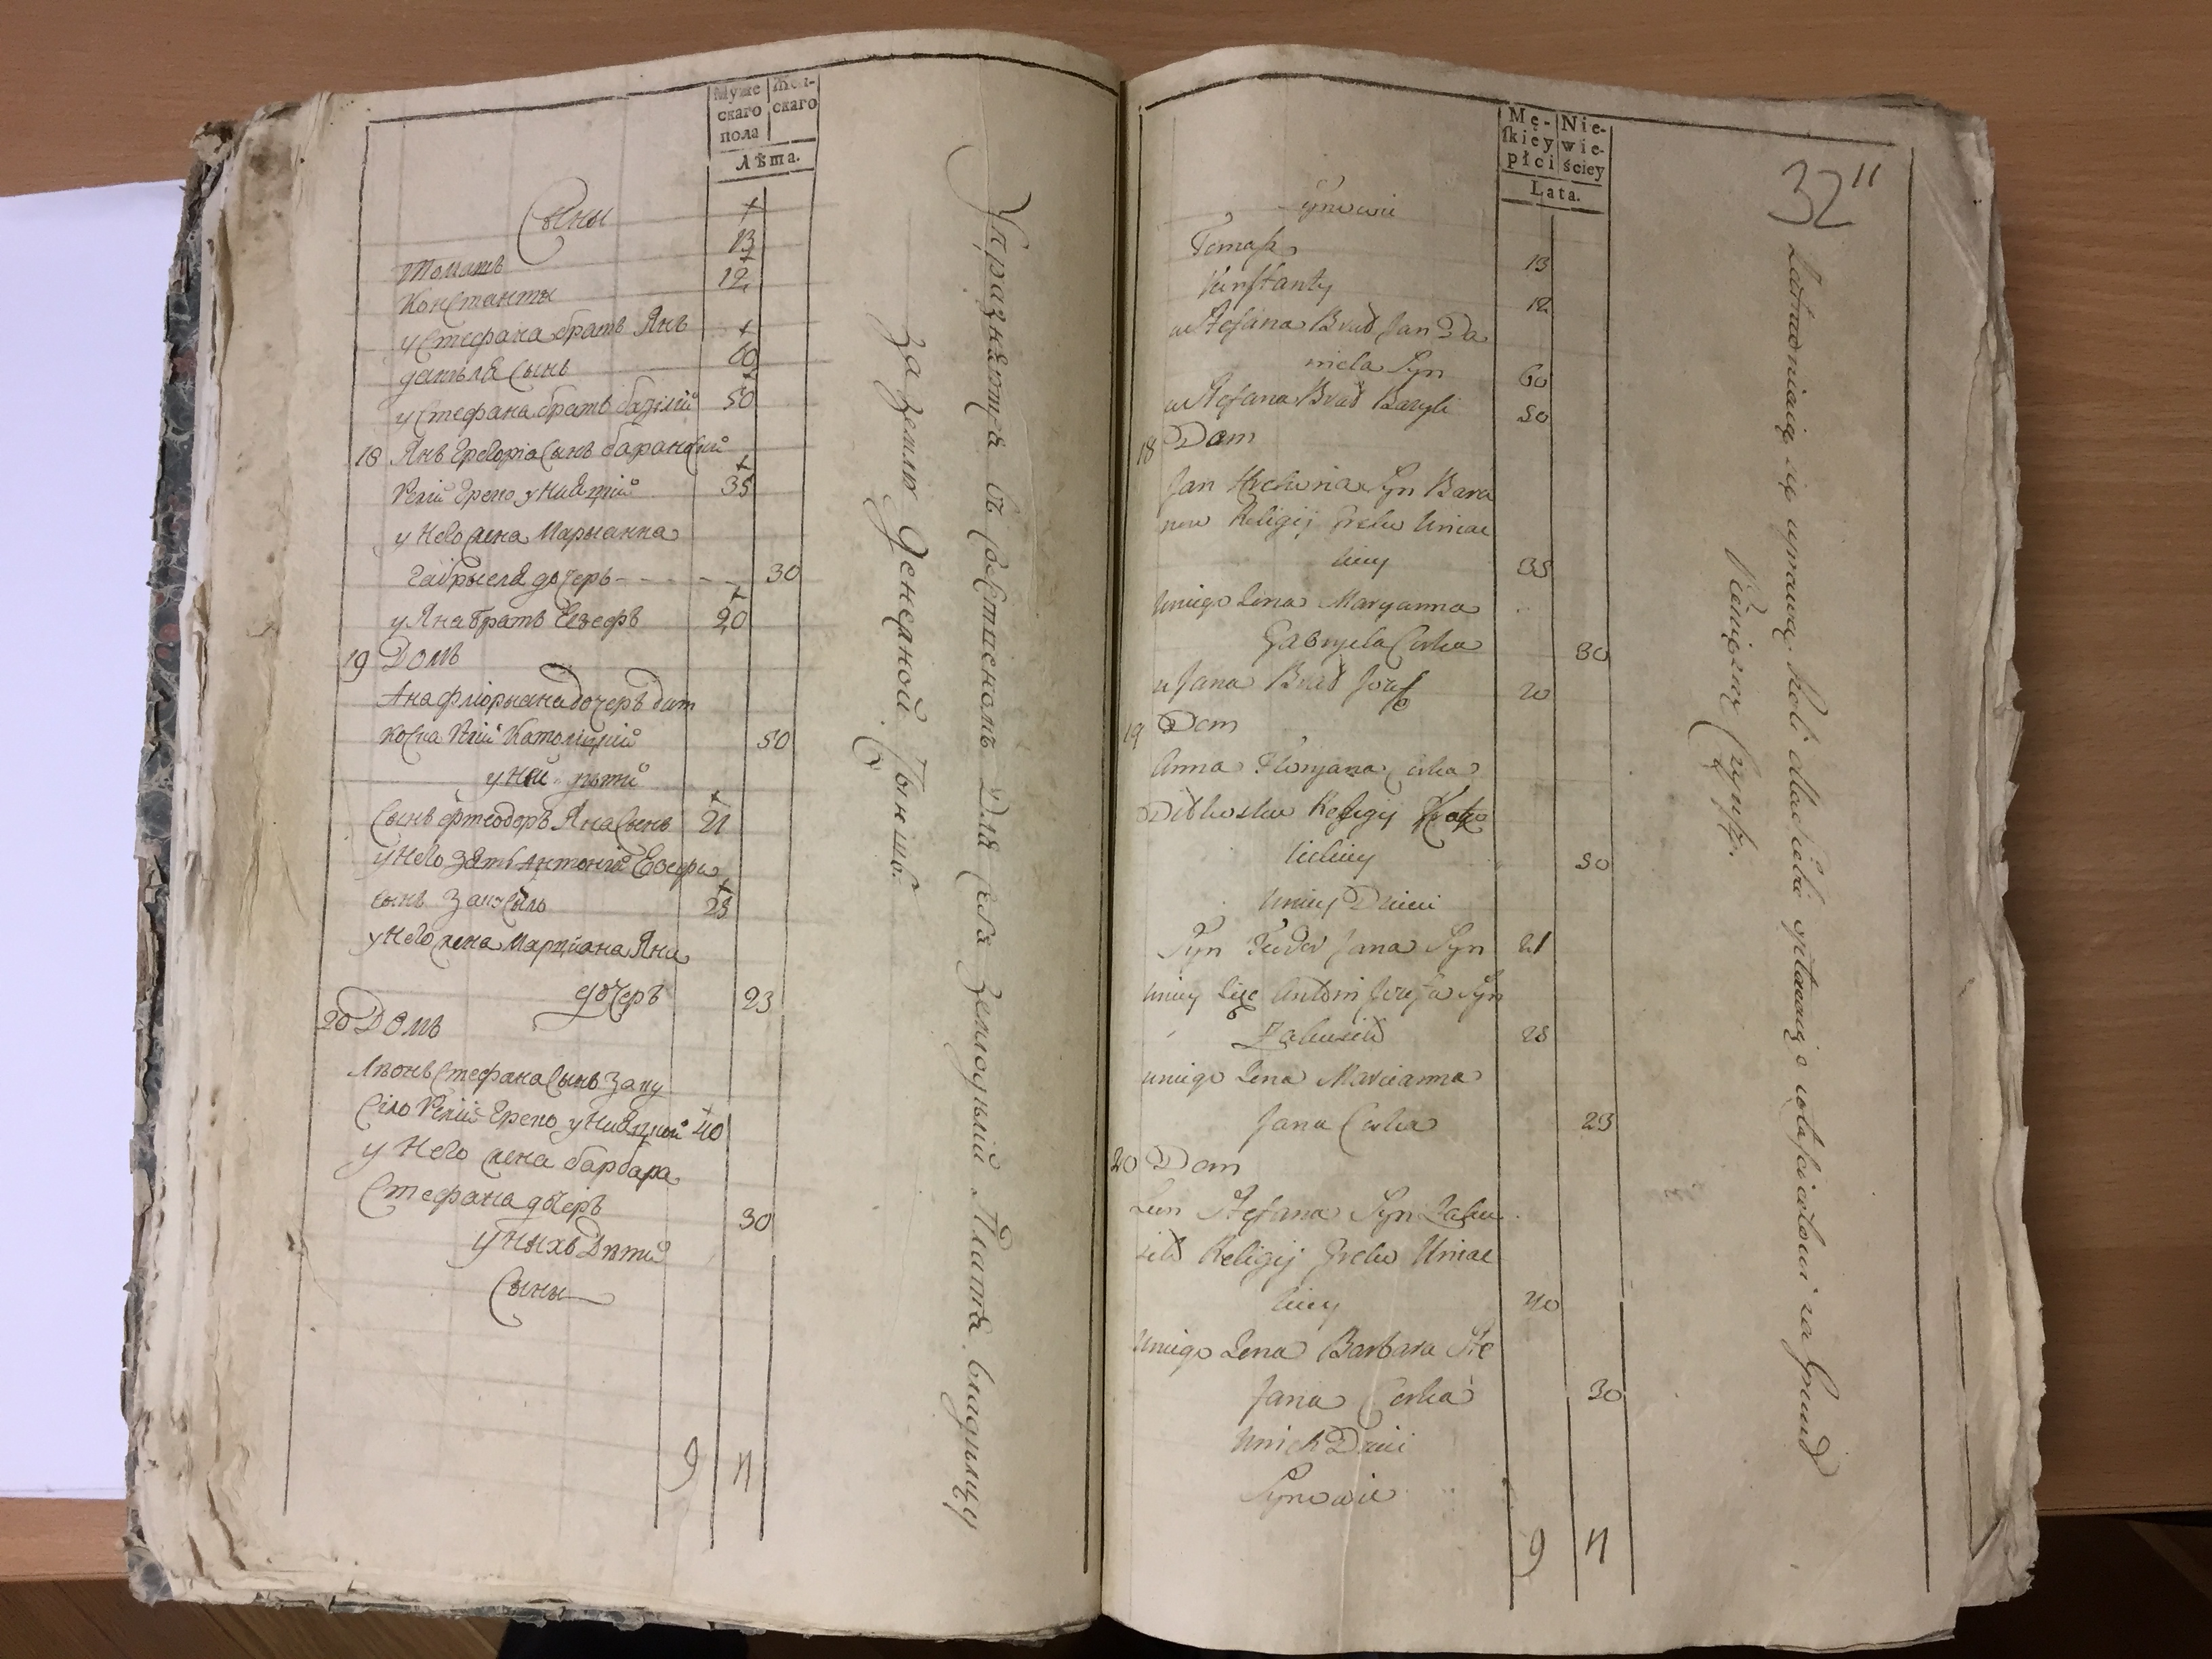 Муже
скаго
пола
Жен-
скаго
Лѣта.
Сыны
Томашъ 13
Константы 12
у Стефана братъ Янъ
данѣля Сынъ 60
у Стефана братъ базилій 50
18 Янъ Грегоріа Сынъ баранскій
Релій Греко униацкій 35
у Него жена Марыанна
Габрыеля дочерь - - - - 30
у Яна братъ Езефъ 20
19 Домъ
Анна флорыана дочеръ
Релій Католицкій 50
у Ней дѣтѣй
Сынъ фтеодоръ Яна Сынъ 21
у Него зять Антоній Езефа
сынъ 28
у Него жена Марціана Яна
дочеръ 23
20 Домъ
Лѣонъ Стефана Сынъ Заку
сіло Релій Греко униацкой 40
у Него жена барбара
Стефана дочеръ 30
у Ныхъ Дѣтѣй
Сыны
9 4
Упражняются въ Крестьскомъ Для Себя Земледѣлій Платя владѣльцу
За землю Денежной Чыншъ
Mę-
skiey
płci
Nie-
wie-
ściey
Lata.
32
Synowie
Tomasz 13
Konstanty 12
u Stefana Brat Jan Da
niela Syn 60
u Stefana Brat Bazyli 50
18 Dom
Jan Hrehoria Syn Bara
now Religij Greko Uniac
kiey 35
Uniego Zona Maryanna
Gabryela Corka 30
u Jana Brat Jozef 20
19 Dom
Anna Floryana Corka
Ditkowska Religij Kato
lickiey 50
Uniey Dzieci
Syn Teodor Jana Syn 21
Uniey Zięc Antoni Jozefa Syn
Zakusiło 28
uniego Zona Marcianna
Jana Corka 23
20 Dom
Leon Stefana Syn Zaku
siło Religij Greko Uniac
kiey 40
Uniego Zona Barbara Ste
fana Corka 30
Unich Dzieci
Synowie
9 4
Zatrudniaią się uprawą Roli dla siebie opłacaiąc właścicielowi za Grund
Pieniężny Czynsz.